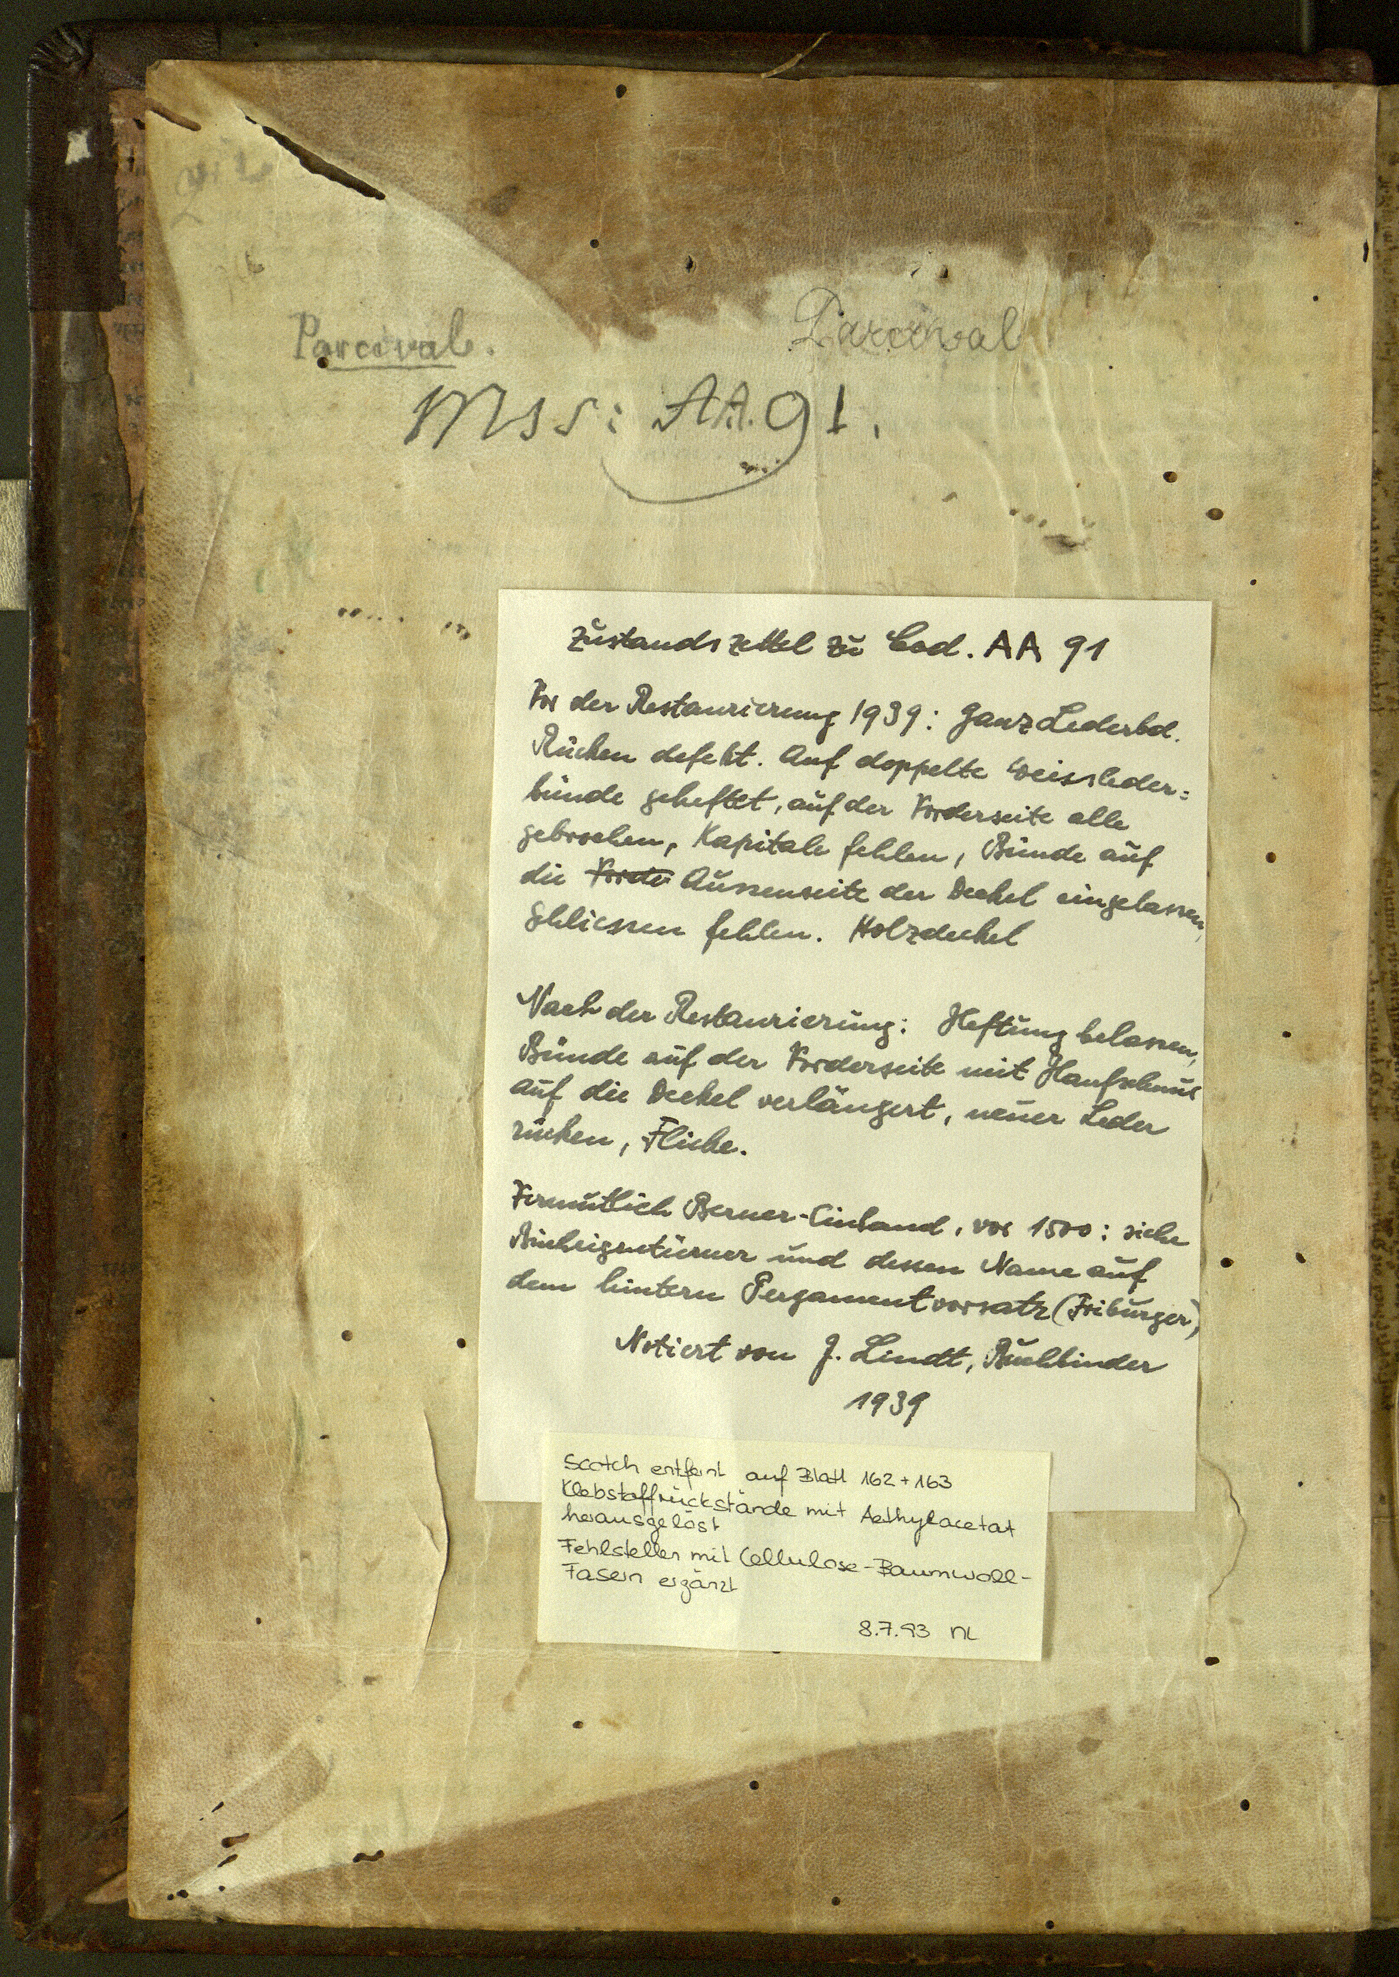 Parcival.
Parcival
Mss: AA.91.
Zustandszettel zu Cod. AA 91
Vor der Restaurierung 1939: Ganz Lederbd.
Rücken defekt. Auf doppelte Weissleder=
bünde geheftet, auf der Vorderseite alle
gebrochen, Kapitale fehlen, Bünde auf
die Vorde Aussenseite der Deckel eingelassen,
Schliessen fehlen. Holzdeckel
Nach der Restaurierung: Heftung belassen,
Bünde auf der Vorderseite mit Hanfschnur
auf die Deckel verlängert, neuer Leder
rücken, Flicke.
Vermutlich Berner-Einband, vor 1500: siehe
und dessen Name auf
dem hintern Pergamentvorsatz (Friburger)
Notiert von J. Lindt, Buchbinder
1939
Scotch entfernt auf Blatt 162 + 163
Klebstoffrückstände mit Aethylacetat
herausgelöst
Fehlstellen mit Cellulose-Baumwoll-
Fasern ergänzt
8.7.93 NL